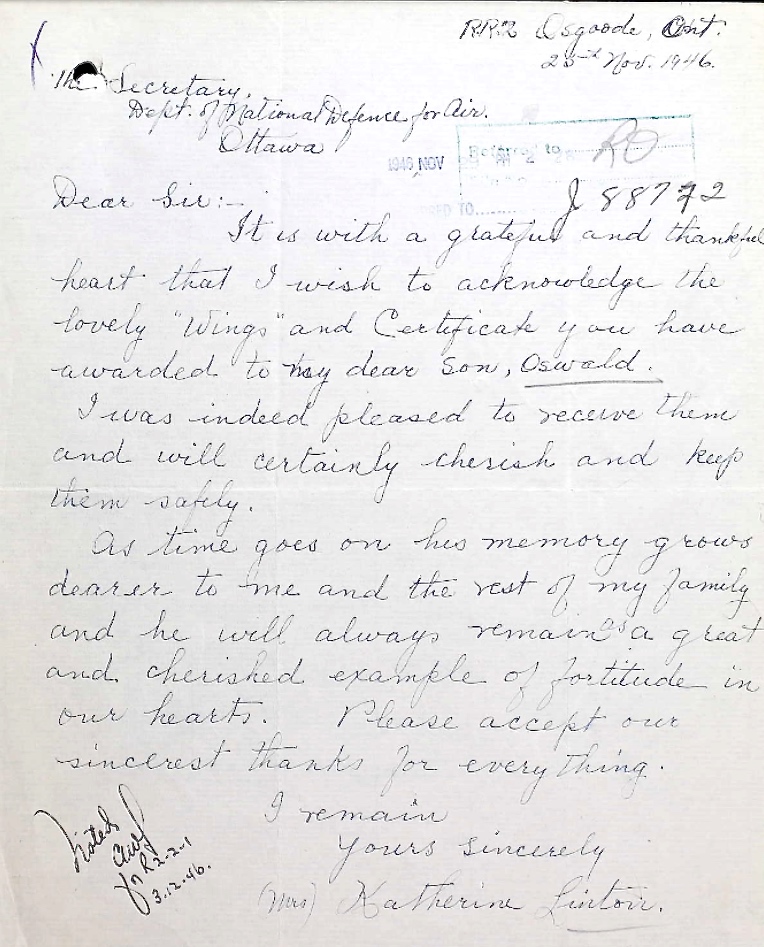 RR2 Osgoode, Ont.
25th Nov. 1946.
The Secretary,
Dept. of National Defence for Air.
Ottawa
1946 NOV
Referred to RO
J 88772
Dear Sir:-
It is with a grateful and thankful
heart that I wish to acknowledge the
lovely "Wings" and Certificate you have
awarded to my dear son, Oswald.
I was indeed pleased to receive them
and will certainly cherish and keep
them safely.
As time goes on his memory grows
dearer to me and the rest of my family
and he will always remain as a great
and cherished example of fortitude in
our hearts. Please accept our
sincerest thanks for everything.
I remain
Yours Sincerely
(Mrs) Katherine Lintoir.
Noted
for R2-2-1
3.12.46.